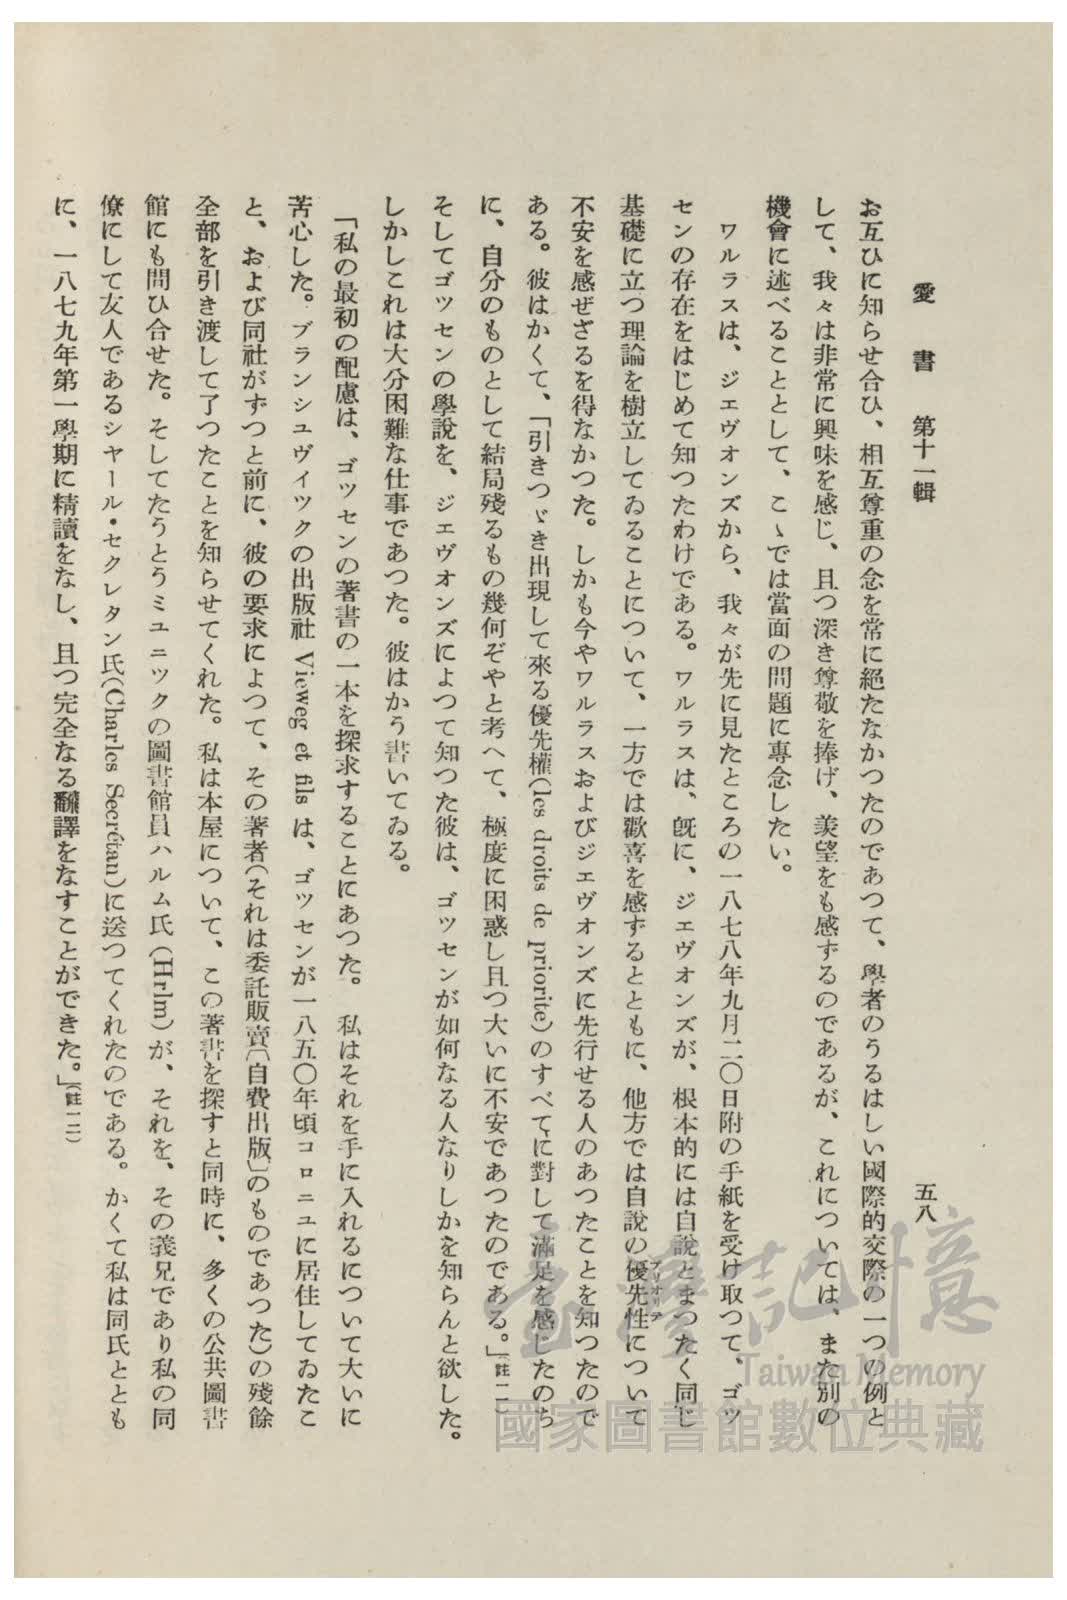 愛書 第十一輯
五八
お互ひに知らせ合ひ、相互尊重の念を常に絕たなかつたのであつて、學者のうるはしい國際的交際の一つの例と
して、我々は非常に興味を感じ、且つ深き尊敬を捧げ、羨望をも感ずるのであるが、これについては、また別の
機會に述べることとして、こゝでは當面の問題に專念したい。
ワルラスは、ジエヴオンズから、我々が先に見たところの一八七八年九月二〇日附の手紙を受け取つて、ゴツ
センの存在をはじめて知つたわけである。ワルラスは、旣に、ジエヴオンズが、根本的には自說とまつたく同じ
基礎に立つ理論を樹立してゐることについて、一方では歡喜を感ずるとともに、他方では自說の優先性について
プリオリテ
不安を感ぜざるを得なかつた。しかも今やワルラスおよびジエヴオンズに先行せる人のあつたことを知つたので
ある。彼はかくて、「引きつゞき出現して來る優先權(les droits de priorite)のすべてに對して滿足を感じたのち
に、自分のものとして結局殘るもの幾何ぞやと考へて、極度に困惑し且つ大いに不安であつたのである。」(註一一)
そしてゴツセンの學說を、ジエヴオンズによつて知つた彼は、ゴツセンが如何なる人なりしかを知らんと欲した。
しかしこれは大分困難な仕事であつた。彼はかう書いてゐる。
「私の最初の配慮は、ゴツセンの著書の一本を探求することにあつた。私はそれを手に入れるについて大いに
苦心した。ブランシユヴイツクの出版社 Vieweg et fils は、ゴツセンが一八五〇年頃コロニユに居住してゐたこ
と、および同社がずつと前に、彼の要求によつて、その著者(それは委託販賣〔自費出版〕のものであつた)の殘餘
全部を引き渡して了つたことを知らせてくれた。私は本屋について、この著書を探すと同時に、多くの公共圖書
館にも問ひ合せた。そしてたうとうミユニツクの圖書館員ハルム氏(Hrlm)が、それを、その義兄であり私の同
僚にして友人であるシヤール・セクレタン氏(Charles Secrétan)に送つてくれたのである。かくて私は同氏ととも
に、一八七九年第一學期に精讀をなし、且つ完全なる飜譯をなすことができた。」(註一二)
臺灣記憶
Taiwan Memory
國家圖書館數位典藏